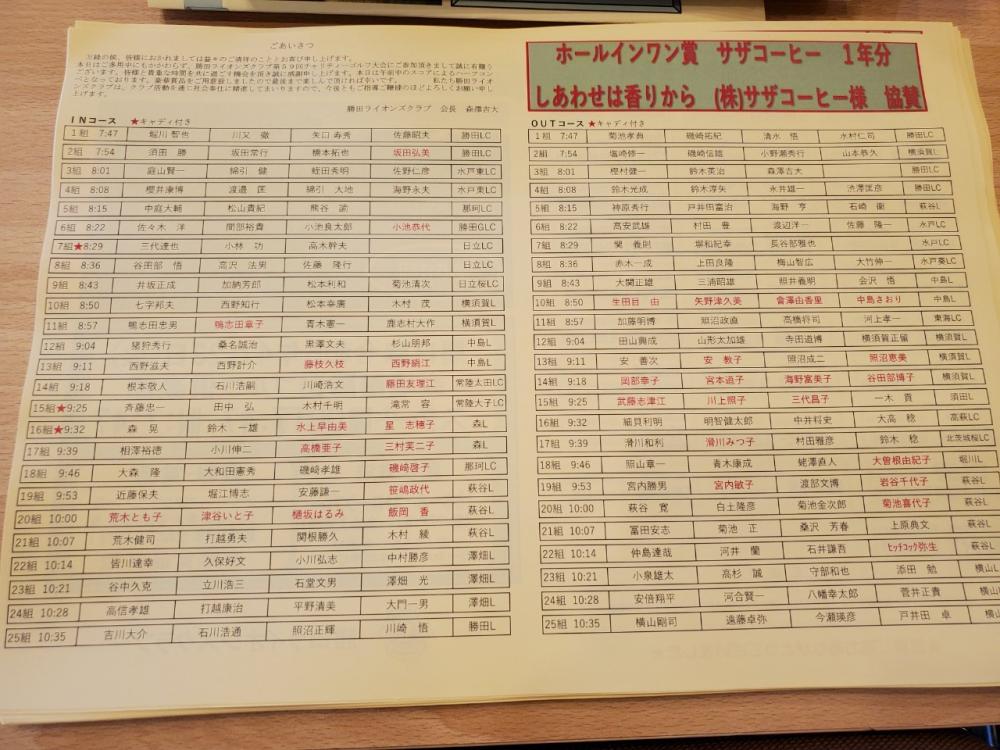 ごあいさつ
勝田ライオンズクラブ 会長 森澤吉大
ホールインワン賞 サザコーヒー 1年分
しあわせは香りから (株)サザコーヒー様 協賛
INコース ★キャディ付き
1組 7:47 堀川 智也 川又 徹 矢口 寿秀 佐藤昭夫 勝田LC
2組 7:54 須田 勝 坂田常行 橋本拓也 坂田弘美 勝田LC
3組 8:01 庭山賢一 綿引 健 蛭田秀明 佐野仁彦 水戸東LC
4組 8:08 櫻井康博 渡邉 匡 綿引 大地 海野永夫 水戸東LC
5組 8:15 中庭大輔 松山貴紀 熊谷 諭 那珂LC
6組 8:22 佐々木 洋 間部裕貴 小池良太郎 小池恭代 勝田GLC
7組★8:29 三代達也 小林 功 高木幹夫 日立LC
8組 8:36 谷田部 悟 高沢 法男 佐藤 隆行 日立LC
9組 8:43 井坂正成 加納芳郎 松本利和 菊池清次 日立桜LC
10組 8:50 七字邦夫 西野知行 松本幸廣 木村 茂 横須賀L
11組 8:57 鴨志田忠男 鴨志田章子 青木憲一 鹿志村大作 横須賀L
12組 9:04 猪狩秀行 桑名誠治 黒澤文夫 杉山朋邦 中島L
13組 9:11 西野滋夫 西野計介 藤枝久枝 西野絹江 中島L
14組 9:18 根本敬人 石川浩嗣 川崎浩文 藤田友理江 常陸太田LC
15組★9:25 斉藤忠一 田中 弘 木村千明 滝常 容 常陸大子LC
16組★9:32 森 晃 鈴木 一雄 水上早由美 星 志穂子 森L
17組 9:39 相澤裕徳 小川伸二 高橋亜子 三村芙二子 森L
18組 9:46 大森 隆 大和田憲秀 磯崎孝雄 磯崎啓子 那珂LC
19組 9:53 近藤保夫 堀江博志 安藤謙一 笹嶋政代 萩谷L
20組 10:00 荒木とも子 津谷いと子 樋坂はるみ 飯岡 香 萩谷L
21組 10:07 荒木健司 打越勇夫 関根勝久 木村 綾 萩谷L
22組 10:14 皆川達幸 久保好文 小川弘志 中村勝彦 澤畑L
23組 10:21 谷中久克 立川浩三 石堂文男 澤畑 光 澤畑L
24組 10:28 高信孝雄 打越康治 平野清美 大門一男 澤畑L
25組 10:35 吉川大介 石川浩通 照沼正輝 川崎 悟 勝田L
OUTコース ★キャディ付き
1組 7:47 菊池孝典 磯崎拓紀 清水 悟 水村仁司 勝田LC
2組 7:54 塩崎修一 磯崎信雄 小野瀬秀行 山本恭久 横須賀L
3組 8:01 樫村健一 鈴木英治 森澤吉大 勝田LC
4組 8:08 鈴木光成 鈴木淳矢 永井雄一 渋澤匡彦 勝田LC
5組 8:15 神原秀行 戸井田富治 海野 亨 石崎 衛 萩谷L
6組 8:22 高安武雄 村田 豊 渡辺洋一 佐藤 隆一 水戸LC
7組 8:29 関 義則 塚和紀幸 長谷部雅也 水戸LC
8組 8:36 赤木一成 上田良隆 梅山智広 大竹伸一 水戸葵LC
9組 8:43 大関正雄 三浦昭雄 照井義明 会沢 悟 中島L
10組 8:50 生田目 由 矢野津久美 會澤由香里 中島さおり 中島L
11組 8:57 加藤明博 照沼政直 高橋将司 河上孝一 東海LC
12組 9:04 田山興成 山形太加雄 寺田迪博 横須賀正留 横須賀L
13組 9:11 安 善次 安 教子 照沼成二 照沼恵美 横須賀L
14組 9:18 岡部幸子 宮本道子 海野富美子 谷田部博子 横須賀L
15組 9:25 武藤志津江 川上照子 三代昌子 一木 貢 須田L
16組 9:32 細貝利明 明智健太郎 中井科史 大高 稔 高萩LC
17組 9:39 滑川和利 滑川みつ子 村田雅彦 鈴木 稔 北茨城桜LC
18組 9:46 照山章一 青木康成 蛯澤直人 大曽根由紀子 堀川L
19組 9:53 宮内勝男 宮内敏子 渡部文博 岩谷千代子 萩谷L
20組 10:00 萩谷 寛 白土隆彦 菊池金次郎 菊池喜代子 萩谷L
21組 10:07 冨田安志 菊池 正 桑沢 芳春 上原典文 萩谷L
22組 10:14 仲島達哉 河井 蘭 石井謙吾 ヒッチコック弥生 萩谷L
23組 10:21 小泉雄太 高杉 誠 守部和也 添田 勉 横山L
24組 10:28 安倍翔平 河合賢一 八幡幸太郎 菅井正貴 横山L
25組 10:35 横山剛司 遠藤卓弥 今瀬瑛彦 戸井田 卓 横山